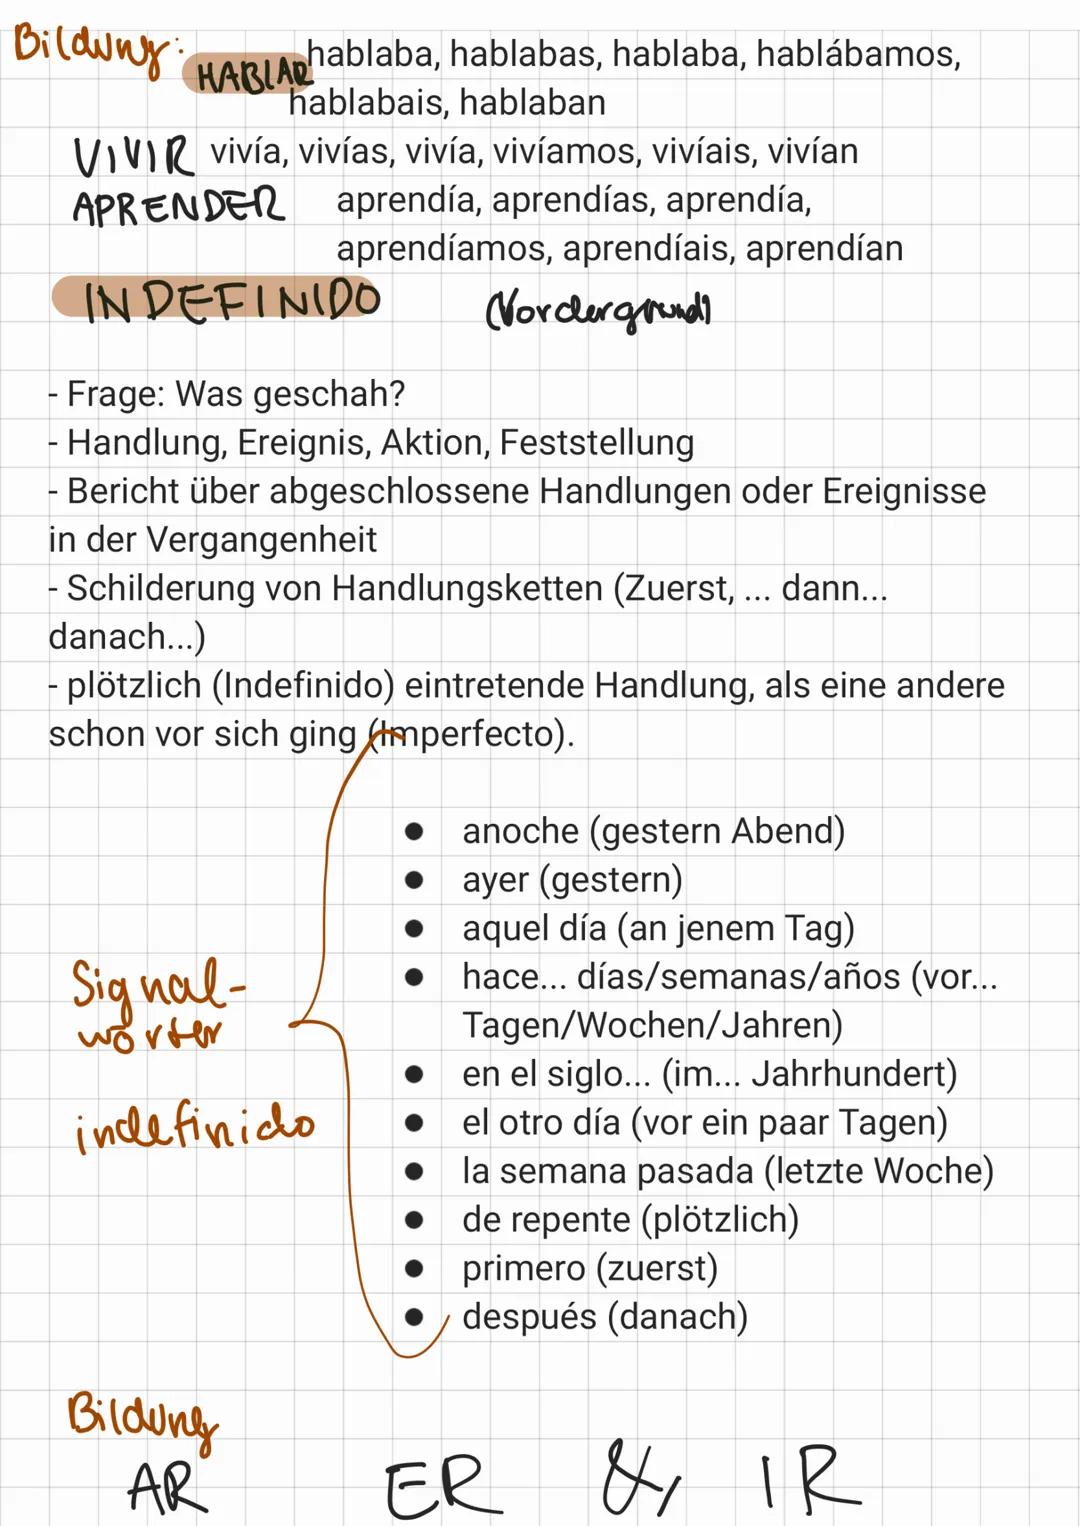 Bildung:
HABLAR hablaba, hablabas, hablaba, hablábamos,
hablabais, hablaban
VIVIR vivía, vivías, vivía, vivíamos, vivíais, vivían
APRENDER aprendía, aprendías, aprendía,
aprendíamos, aprendíais, aprendían
INDEFINIDO (Vordergrund)
- Frage: Was geschah?
- Handlung, Ereignis, Aktion, Feststellung
- Bericht über abgeschlossene Handlungen oder Ereignisse
in der Vergangenheit
- Schilderung von Handlungsketten (Zuerst, ... dann...
danach...)
- plötzlich (Indefinido) eintretende Handlung, als eine andere
schon vor sich ging (Imperfecto).
Signal-
wörter
indefinido
● anoche (gestern Abend)
● ayer (gestern)
● aquel día (an jenem Tag)
● hace... días/semanas/años (vor...
Tagen/Wochen/Jahren)
● en el siglo... (im... Jahrhundert)
● el otro día (vor ein paar Tagen)
● la semana pasada (letzte Woche)
● de repente (plötzlich)
● primero (zuerst)
● después (danach)
Bildung
AR ER & IR